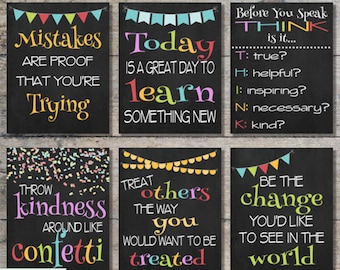 Mistakes
ARE PROOF
THAT YOU'RE
Trying
Today
IS A GREAT DAY TO
learn
SOMETHING NEW
Before You Speak
THINK
is it...
T: true?
H: helpful?
I: inspiring?
N: necessary?
K: kind?
THROW
kindness
AROUND LIKE
confetti
TREAT
others
THE WAY
you
WOULD WANT TO BE
treated
BE THE
change
YOU'D LIKE
TO SEE IN THE
world